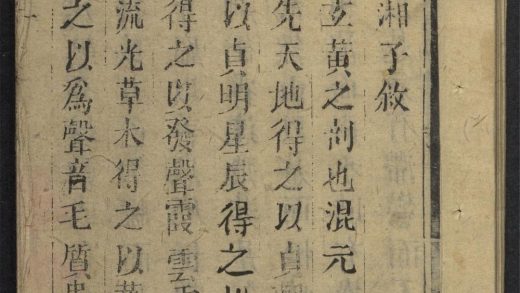 湘子敘
玄黃之剖也混元
先天地得之以貞
以貞明星辰得之
得之以發聲霞雲
流光草木得之以
之以為聲音毛質